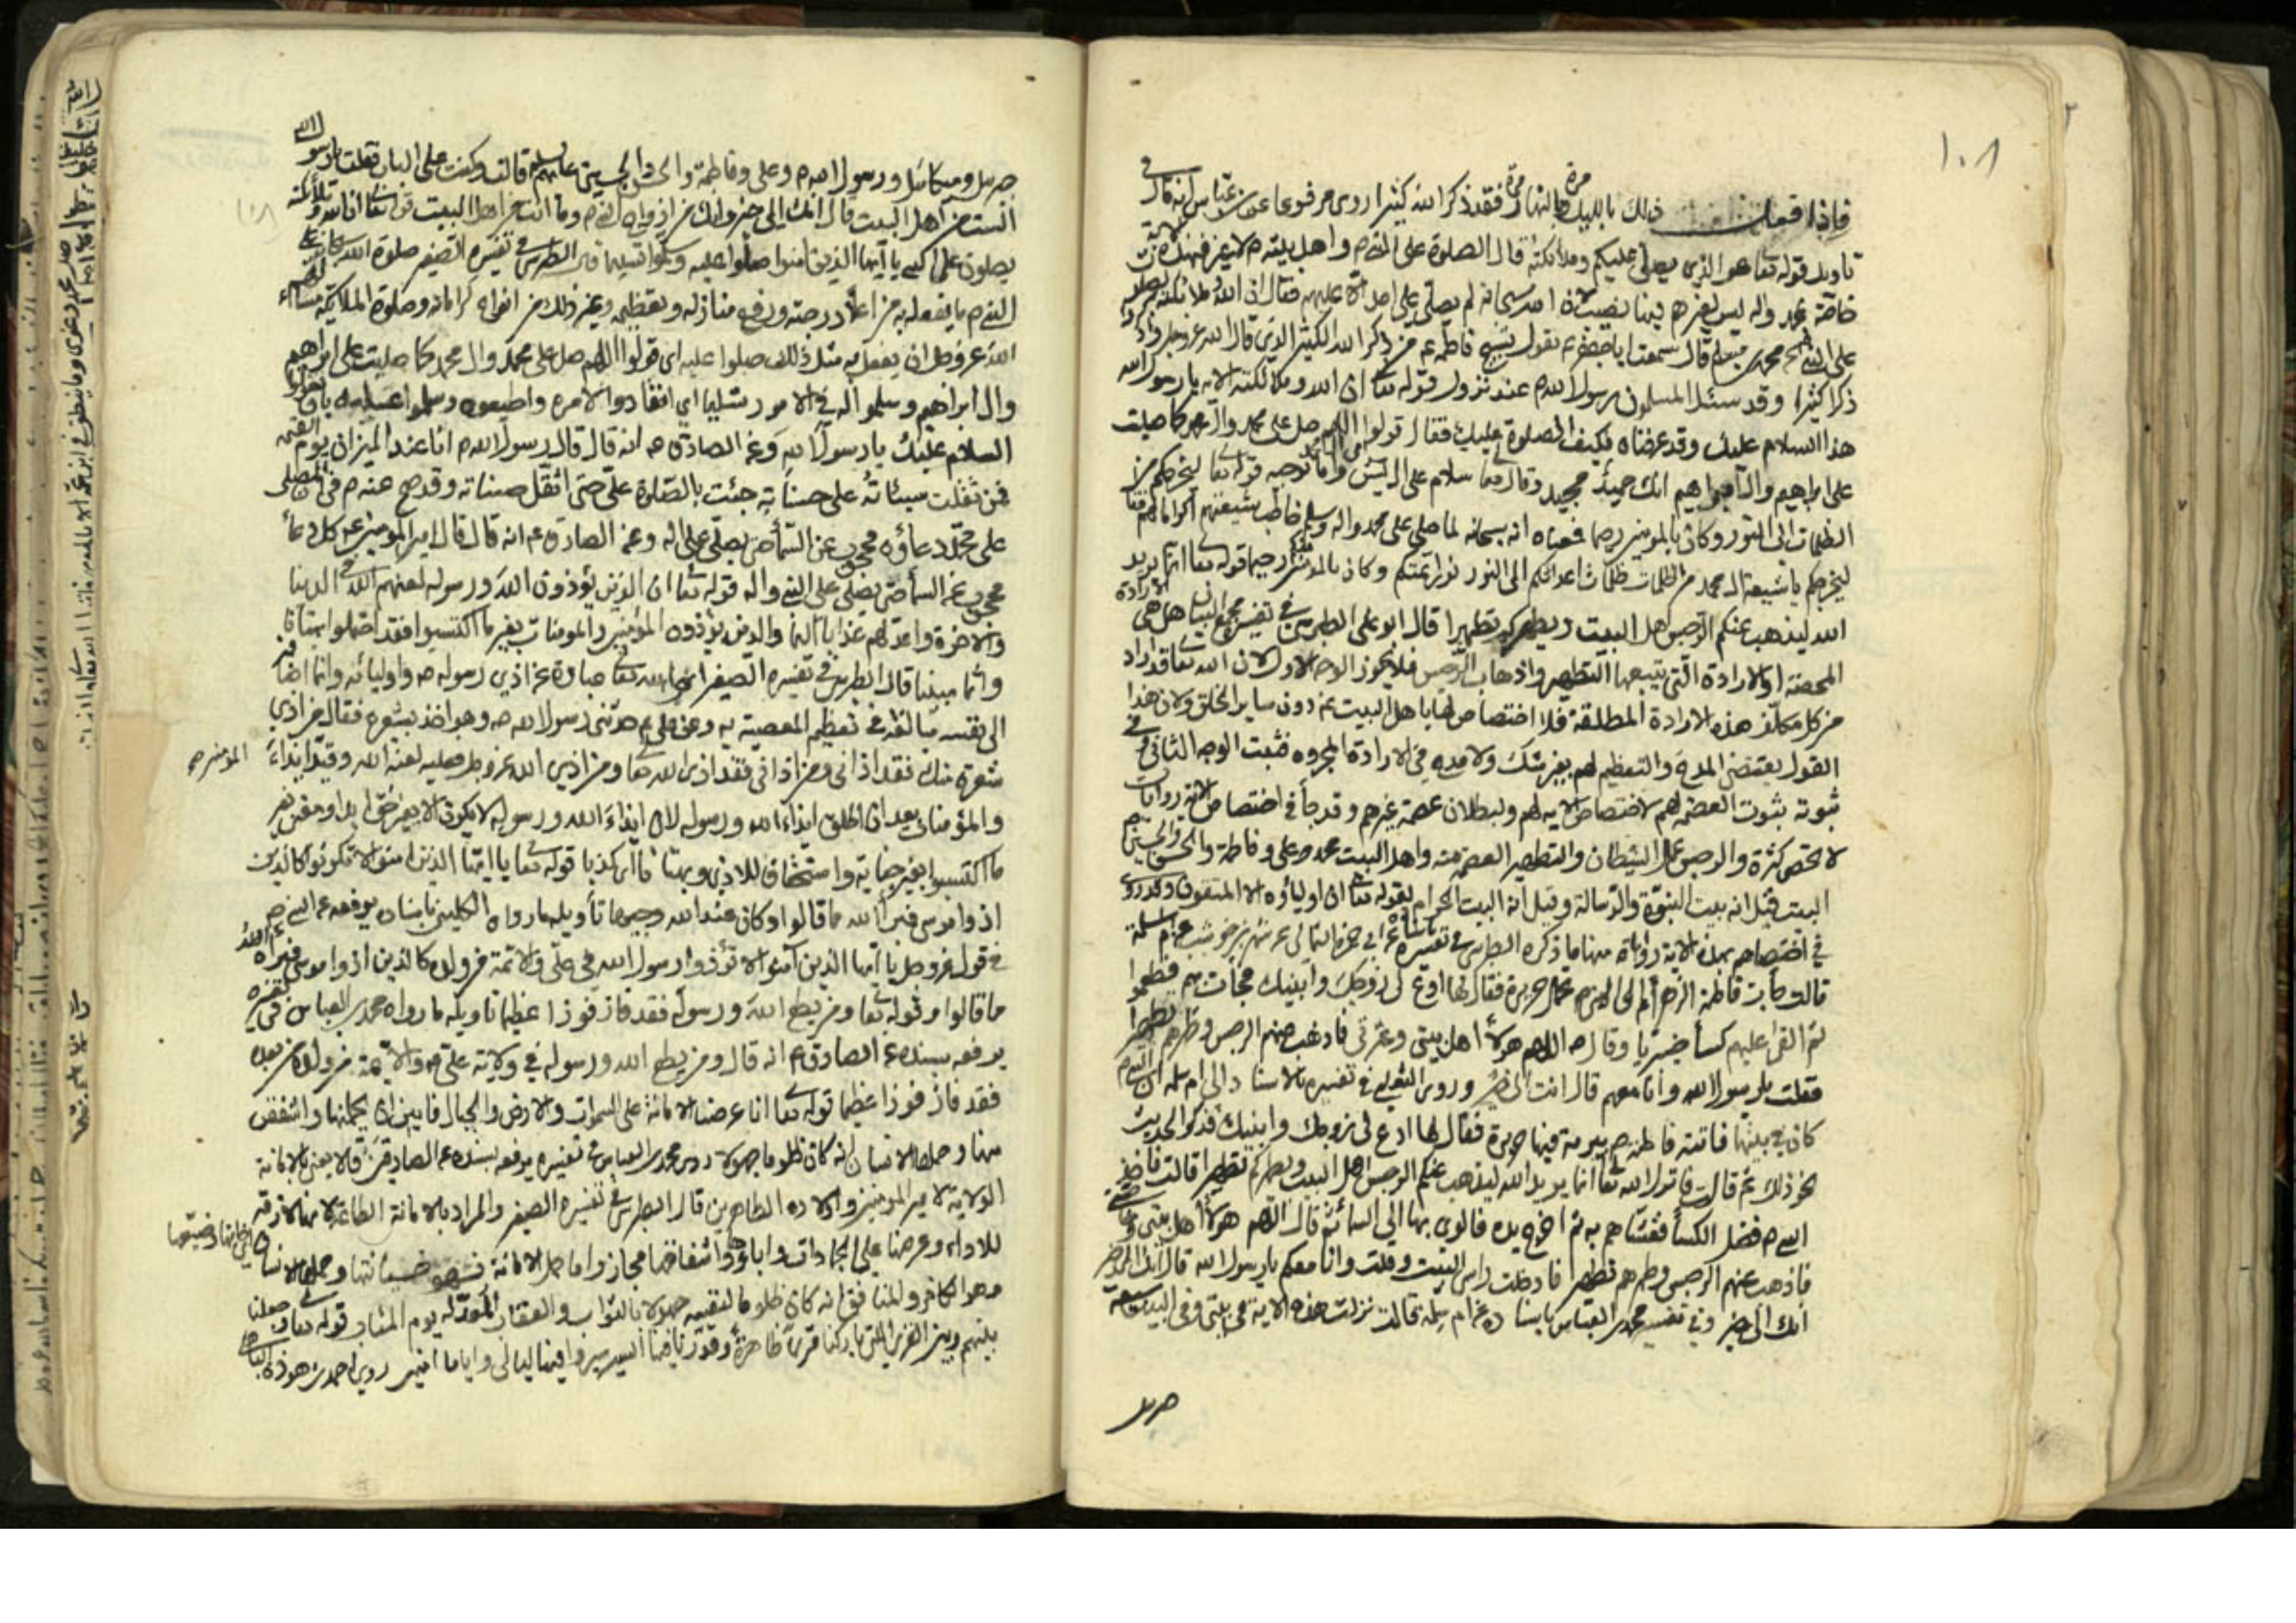 ١٠٨
فاذا فعل ذلك بالليل مرة وبالنهار مرة فقد ذكر الله كثيرا روى مرفوعا عن ابن عباس انه قال في
تاويل قوله تعا هو الذي يصلي عليكم وملائكته قال الصلوة على النبي ص واهل بيته لا غير فهذه الاية
خاصة محمد واله ليس لغيرهم فيها نصيب لان الله سبحانه لم يصلي على احد الا عليهم فقال ان الله وملائكته يصلون
على النبي محمد بن مسلم قال سمعت ابا جعفر ع يقول تسبيح فاطمة ع من ذكر الله الكثير الذي قال الله عز وجل
ذكرا كثيرا وقد سئل المسلمون رسول الله ص عند نزول قوله تعا ان الله وملائكته الاية يا رسول الله
هذا السلام عليك وقد عرفناه فكيف الصلوة عليك فقال قولوا اللهم صل على محمد وال محمد كما صليت
على ابراهيم وال ابراهيم انك حميد مجيد وقال تعا سلام على ال يس واما توجيه قوله تعا ليخرجكم من
الظلمات الى النور وكان بالمؤمنين رحيما فمعناه انه سبحانه لما صلى على محمد واله وسلم خاطب شيعتهم اكراما لهم فقال
ليخرجكم يا شيعة ال محمد من الظلمات ظلمات اعدائكم الى النور نور ائمتكم وكان بالمؤمنين رحيما قوله تعا انما يريد
الله ليذهب عنكم الرجس اهل البيت ويطهركم تطهيرا قال ابو علي الطبرسي في تفسير مجمع البيان هل هي الارادة
المحضة او الارادة التي يتبعها التطهير واذهاب الرجس فلا يجوز الوجه الاول لان الله تعا قد اراد
من كل مكلف هذه الارادة المطلقة فلا اختصاص لها باهل البيت ع دون ساير الخلق ولان هذا
القول يقتضي المدح والتعظيم لهم بغير شك ولا مدح في الارادة المجردة فثبت الوجه الثاني وفي
ثبوته ثبوت العصمة لهم لاختصاص الاية لهم ولبطلان عصمة غيرهم وقد جاء في اختصاص الاية روايات
لا تحصى كثرة والرجس عمل الشيطان والتطهير العصمة منه واهل البيت محمد وعلي وفاطمة والحسن والحسين
البيت قيل انه بيت النبوة والرسالة وقيل انه البيت الحرام لقوله تعا ان اولياؤه الا المتقون وقد روى
في اختصاصهم بهذه الاية روايات منها ما ذكره الطبرسي في تفسيره باسناده عن ابي حمزة الثمالي عن شهر بن حوشب عن ام سلمة
قالت جاءت فاطمة الزهراء الى النبي ص تحمل حريرة فقال لها ادع لي زوجك وابنيك فجاءت بهم فطعموا
ثم القى عليهم كساء خيبريا وقال ص اللهم هؤلاء اهل بيتي وعترتي فاذهب عنهم الرجس وطهرهم تطهيرا
فقلت يا رسول الله وانا معهم قال انت الى خير وروى الثعلبي في تفسيره بالاسناد الى ام سلمة ان النبي ص
كان في بيتها فاتته فاطمة ص ببرمة فيها حريرة فقال لها ادع لي زوجك وابنيك فذكر الحديث
نحو ذلك ثم قالت فانزل الله تعا انما يريد الله ليذهب عنكم الرجس اهل البيت ويطهركم تطهيرا قالت فاخذ
النبي ص فضل الكساء فغشاهم به ثم اخرج يده فالوى بها الى السماء ثم قال اللهم هؤلاء اهل بيتي وحامتي
فاذهب عنهم الرجس وطهرهم تطهيرا فادخلت راسي البيت وقلت وانا معكم يا رسول الله قال انك الى خير
انك الى خير وفي تفسير محمد بن العباس باسناده عن ام سلمة قالت نزلت هذه الاية في بيتي وفي البيت سبعة
جبريل
جبريل وميكائيل ورسول الله ص وعلي وفاطمة والحسن والحسين عليهم السلام قالت وكنت على الباب فقلت يا رسول الله
الست من اهل البيت قال انك الى خير وانك من ازواج النبي ص وما انت من اهل البيت قوله تعا ان الله وملائكته
يصلون على النبي يا ايها الذين امنوا صلوا عليه وسلموا تسليما قال الطبرسي في تفسيره الصغير صلوة الله تعا على
النبي ص ما يفعله به من اعلاء درجته ورفع منازله وتعظيمه وغير ذلك من انواع كراماته وصلوة الملائكة مسألتهم
الله عز وجل ان يفعل به مثل ذلك صلوا عليه اي قولوا اللهم صل على محمد وال محمد كما صليت على ابراهيم
وال ابراهيم وسلموا له في الامور تسليما اي انقادوا لامره واطيعوه وسلموا عليه بان تقولوا
السلام عليك يا رسول الله وعن الصادق ع انه قال قال رسول الله ص انا عند الميزان يوم القيمة
فمن ثقلت سيئاته على حسناته جئت بالصلوة علي حتى اثقل حسناته وقد صح عنه ص من لم يصلي
على محمد دعاؤه محجوب عن السماء حتى يصلي على اله وعن الصادق ع انه قال قال امير المؤمنين ع كل دعاء
محجوب عن السماء حتى يصلي على النبي واله قوله تعا ان الذين يؤذون الله ورسوله لعنهم الله في الدنيا
والاخرة واعد لهم عذابا اليما والذين يؤذون المؤمنين والمومنات بغير ما اكتسبوا فقد احتملوا بهتانا
واثما مبينا قال الطبرسي في تفسيره الصغير اذى الله تعا عبارة عن اذى رسوله ص واوليائه وانما اضافه
الى نفسه مبالغة في تعظيم المعصية به وعن علي ع حدثني رسول الله ص وهو اخذ بشعره فقال من اذى
شعرة منك فقد اذاني ومن اذاني فقد اذى الله تعا ومن اذى الله عز وجل فعليه لعنة الله وقيد ايذاء المؤمنين
والمؤمنات بعد ان اطلق ايذاء الله ورسوله لان ايذاء الله ورسوله لا يكون الا بغير حق
ما اكتسبوا بغير جناية واستحقاق للاذى وبهتانا اي كذبا قوله تعا يا ايها الذين امنوا لا تكونوا كالذين
اذوا موسى فبراه الله مما قالوا وكان عند الله وجيها تأويله ما رواه الكليني باسناده يرفعه عن النبي ص
في قوله عز وجل يا ايها الذين آمنوا لا تؤذوا رسول الله في علي والائمة ع ولا تكونوا كالذين اذوا موسى فبراه الله
مما قالوا وقوله تعا ومن يطع الله ورسوله فقد فاز فوزا عظيما تاويله ما رواه محمد بن العباس في تفسيره
يرفعه بسنده عن الصادق ع انه قال ومن يطع الله ورسوله في ولاية علي ع والائمة من ولده من بعده
فقد فاز فوزا عظيما قوله تعا انا عرضنا الامانة على السموات والارض والجبال فابين ان يحملنها واشفقن
منها وحملها الانسان انه كان ظلوما جهولا روى محمد بن العباس في تفسيره يرفعه بسنده عن الصادق ع قال يعني بالامانة
الولاية لامير المؤمنين واولاده الطاهرين قال الطبرسي في تفسيره الصغير والمراد بالامانة الطاعة لانها لازمة
للاداء وعرضها على الجمادات واباؤها واشفاقها مجاز واما حمل الامانة وحملها الانسان اي خانها وضيعها
وهو الكافر والمنافق انه كان ظلوما لنفسه جهولا بالثواب والعقاب المعد له يوم الماب قوله تعا وجعلنا
بينهم وبين القرى التي باركنا فيها قرى ظاهرة وقدرنا فيها السير سيروا فيها ليالي واياما امنين روى احمد بن هوذة الباهلي